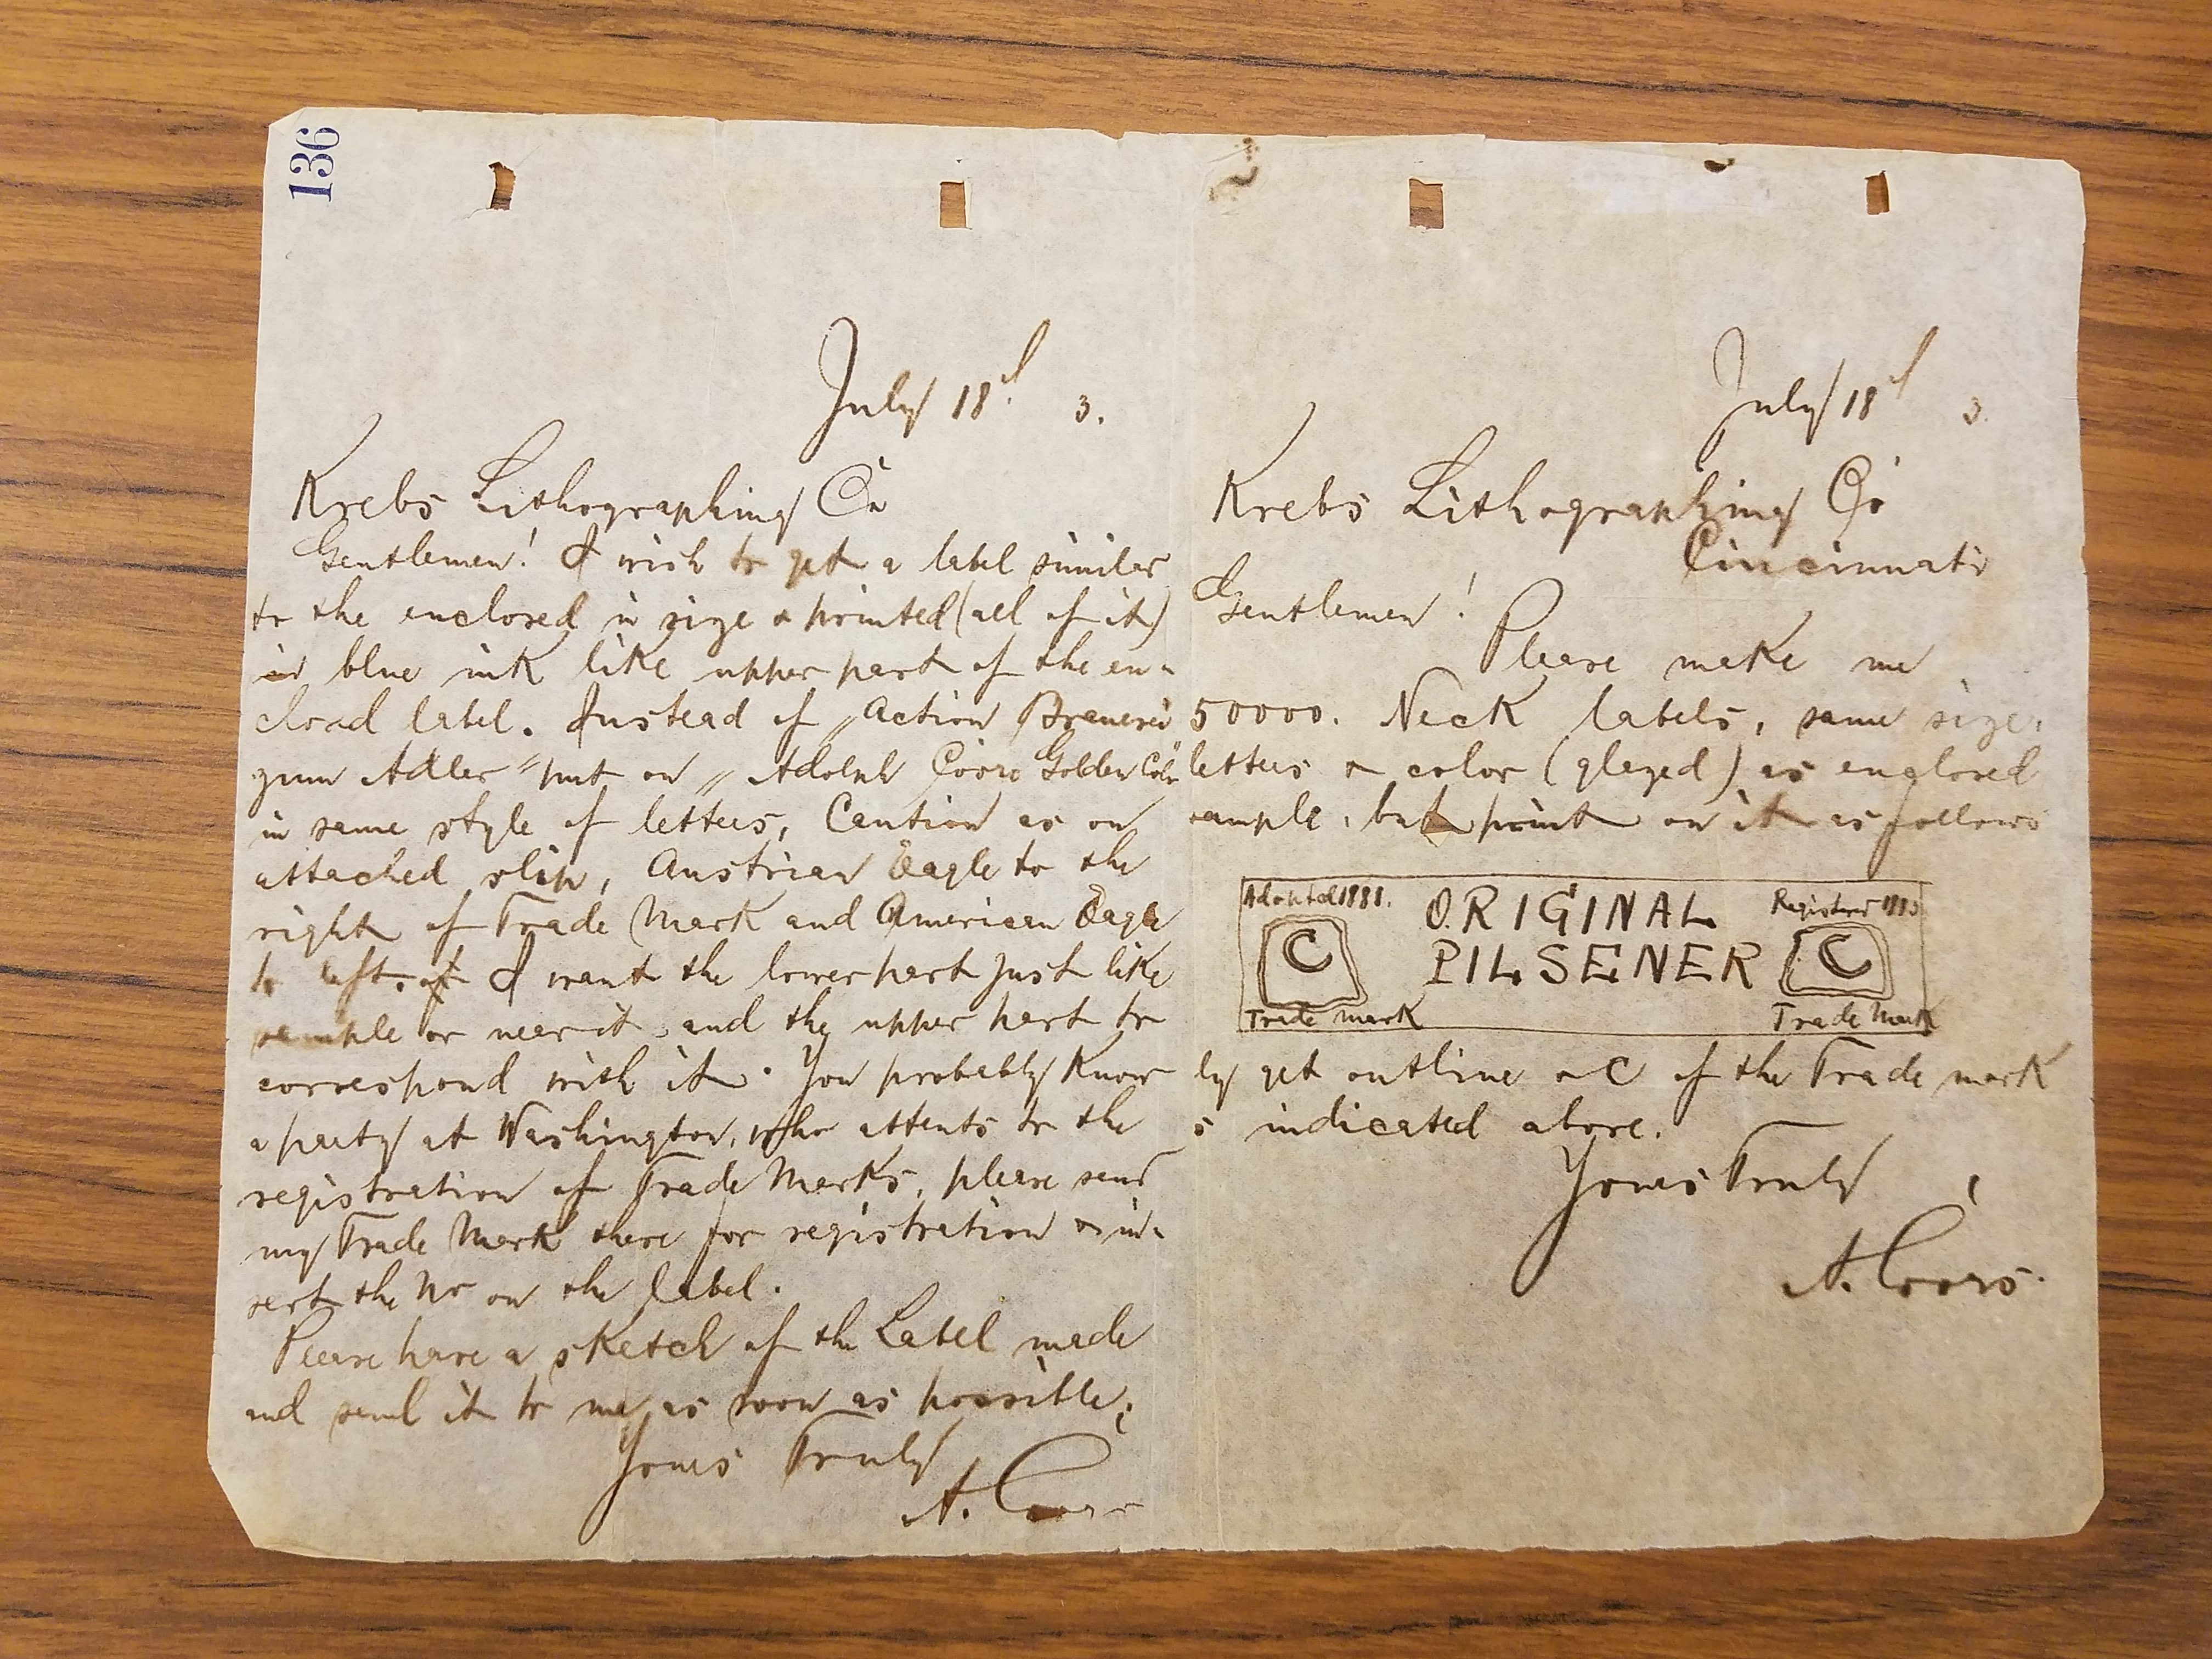 136
July 18th 3.
Krebs Lithographing Co
Gentlemen! I wish to get a label similar
to the enclosed in size & printed (all of it)
in blue ink like upper part of the en=
closed label. Instead of „Action Brauerei
zum Adler" put on „Adolph Coors Golden Colo"
in same style of letters, Caution as on
attached slip, Austrian Eagle to the
right of Trade Mark and American Eagle
to left. I want the lower part just like
sample or near it, and the upper part to
correspond with it. You probably know
a party at Washington, who attents to the
registration of Trade Marks, please send
my Trade Mark there for registration & in=
sert the No on the label.
Please have a sketch of the Label made
and send it to me as soon as possible,
Yours Truly
A. Coors
July 18th 3.
Krebs Lithographing Co
Cincinnati
Gentlemen!
Please make me
50000. Neck labels, same size,
letters & color (glazed) as enclosed
sample, but print on it as follows
Adopted 1881. ORIGINAL Registered 1883
C PILSENER C
Trade mark Trade Mark
ly get outline & C of the Trade mark
s indicated above.
Yours Truly
A. Coors.